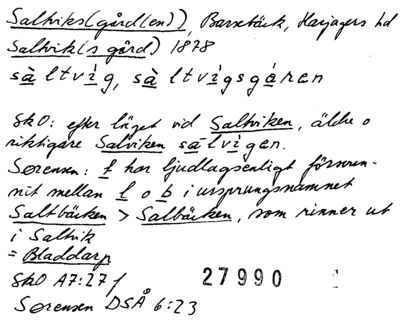 Saltviks(gård(en)), Barsebäck, Harjagers hd
Saltvik(s gård) 1878
sàltvìg, sàltvigsgáren
SkO: efter läget vid Saltviken, äldre o
riktigare Salviken sàlvigen.
Sørensen: t har ljudlagsenligt försvun-
nit mellan l o b i ursprungsnamnet
Saltbäcken > Salbäcken, som rinner ut
i Saltvik
= Bladdarp
SkO A7:27 f
27990
Sørensen DSÅ 6:23